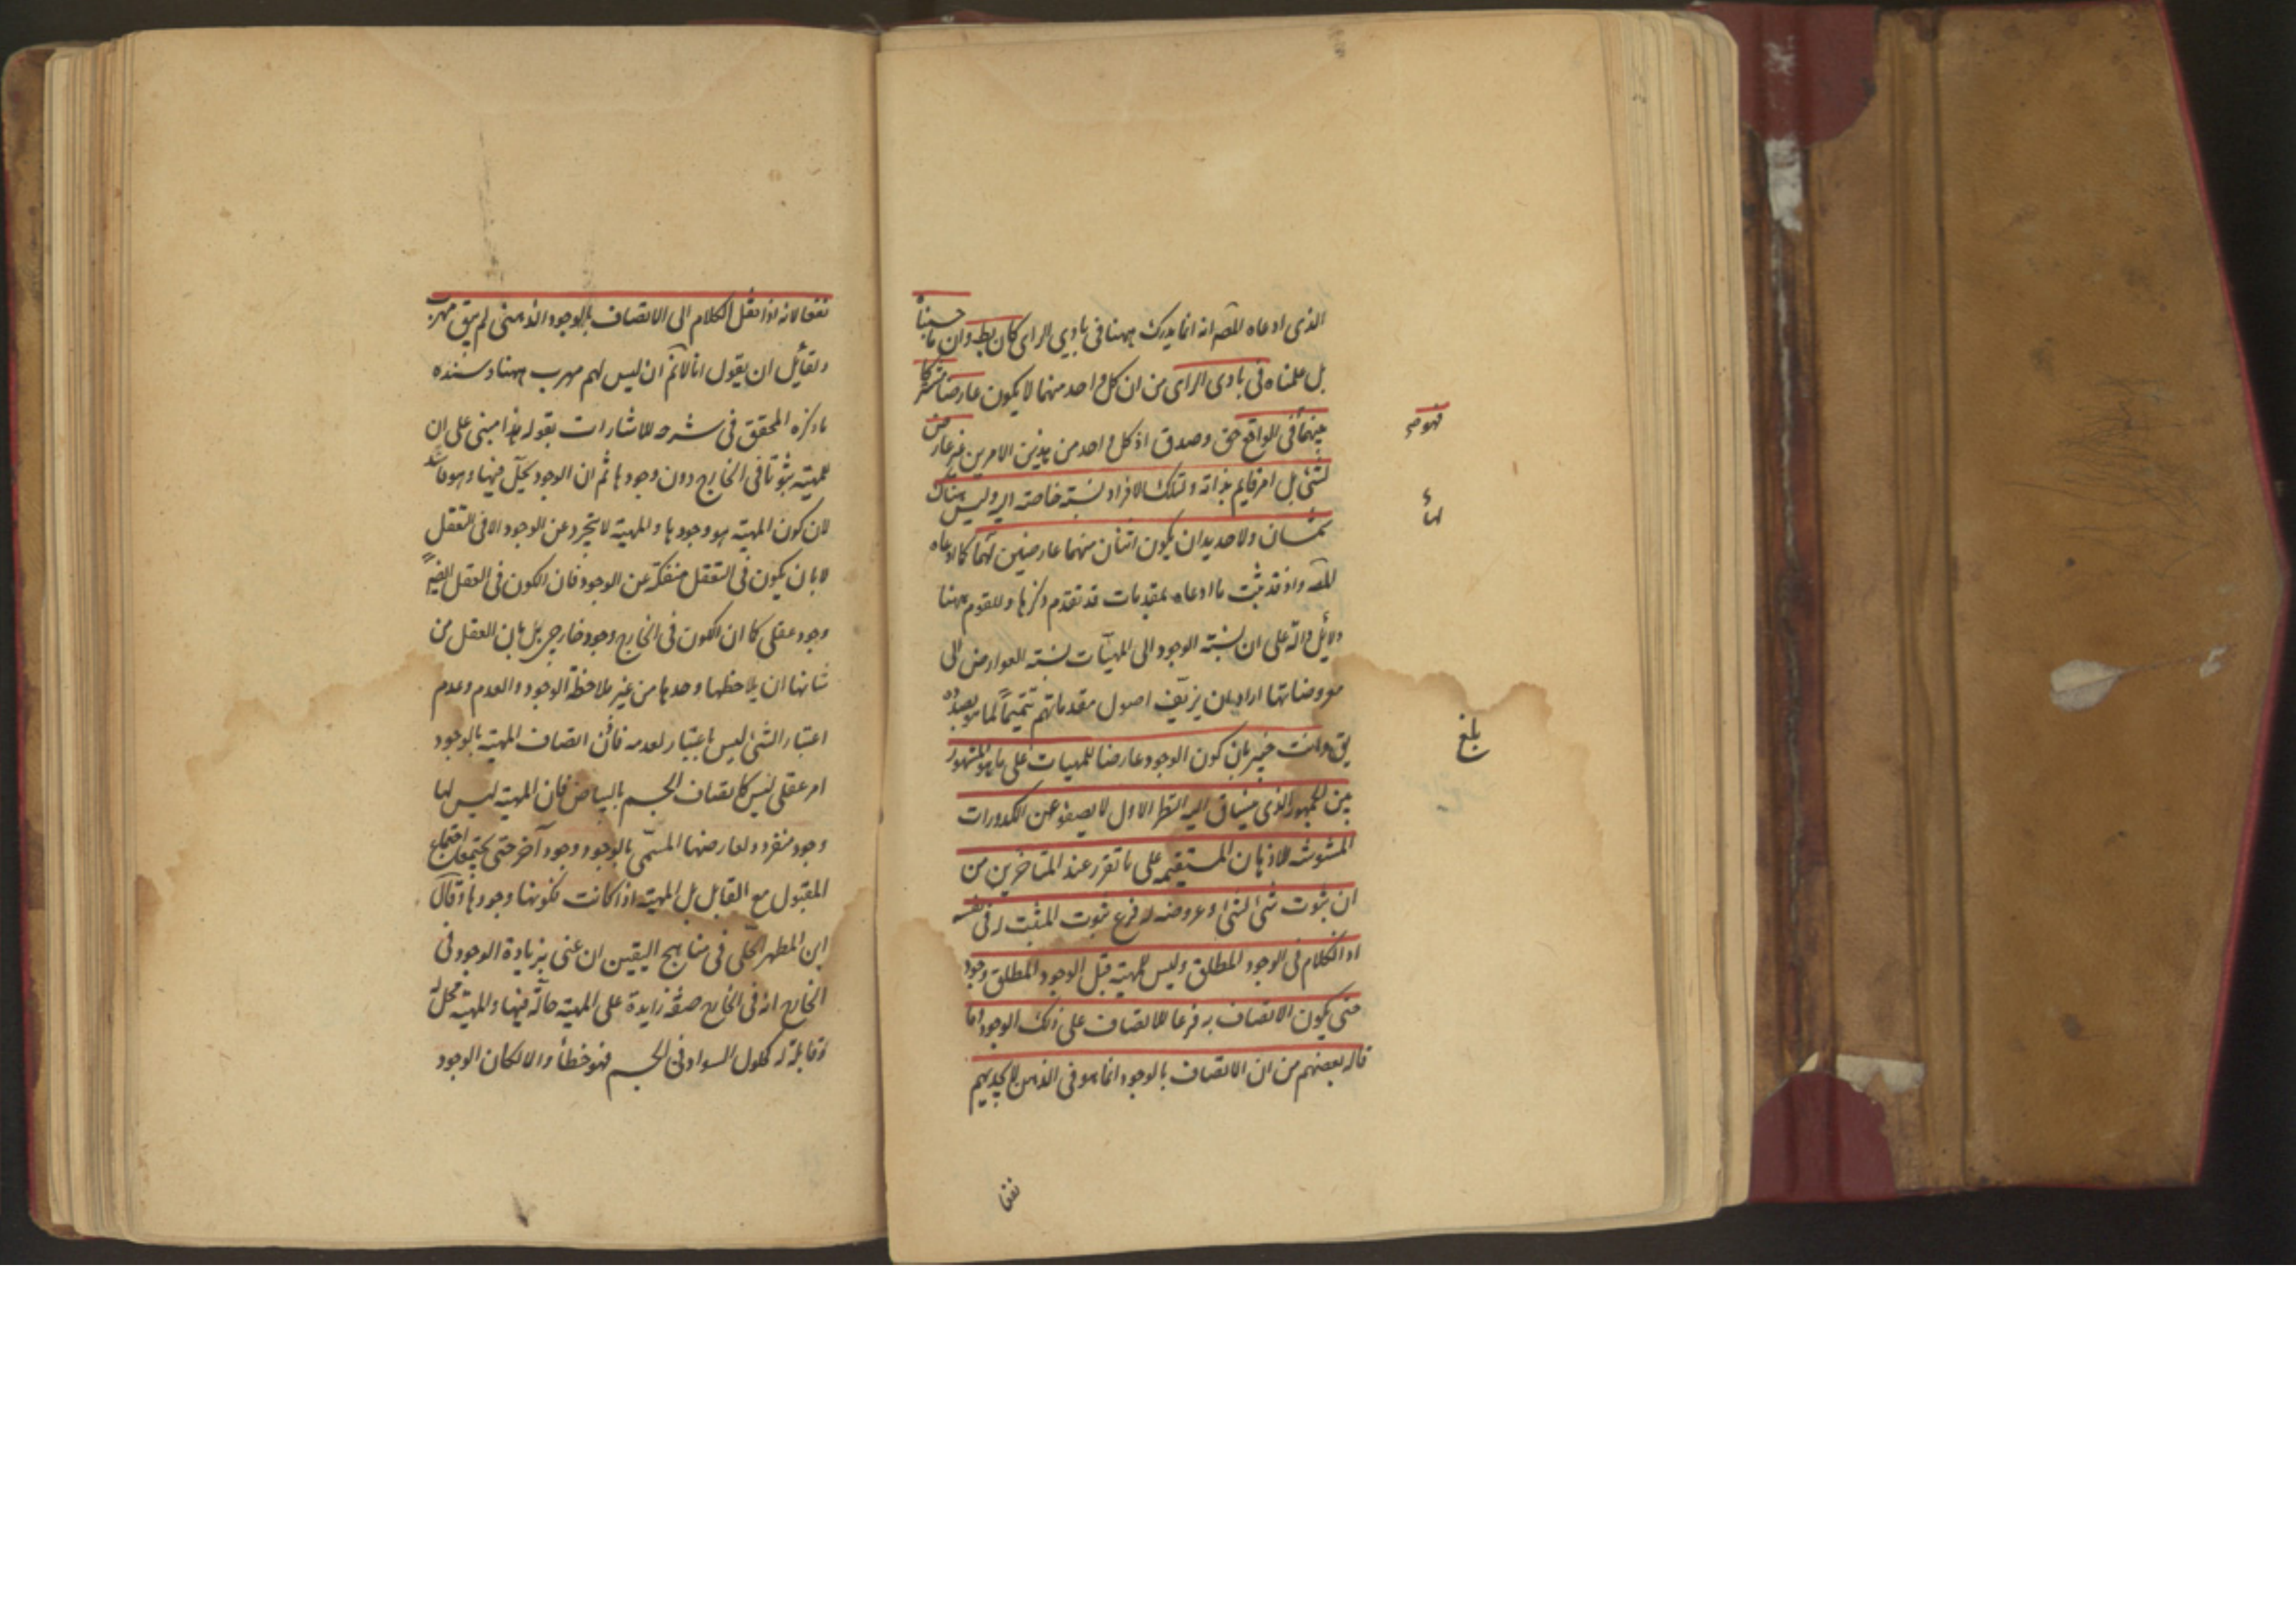 الذى ادعاه المصه انه انما يدرك ههنا فى بادى الراى كان بط وان ما حسبناه
بل علمناه فى بادى الراى من ان كل واحد منهما لا يكون عارضا مشتركا
بينهما فى الواقع حق وصدق اذ كل واحد من هذين الامرين غير عارض
لشئ بل امر قايم بذاته ولتلك الافراد نسبة خاصة اليه وليس هناك
شان ولا حد يدان يكون اثنان منهما عارضين لهما كما ادعاه
المصه واذ قد ثبت ما ادعاه بمقدمات قد تقدم ذكرها وللقوم ههنا
دلايل دالة على ان نسبة الوجود الى المهيات نسبة العوارض الى
معروضاتها اراد ان يزيف اصول مقدماتهم تتميما لما هو بصدده
يق وانت خبير بان كون الوجود عارضا للمهيات على ما هو المشهور
بين الجمهور الذى ينساق اليه النظر الاول لا يصفو عن الكدورات
المشوشه للاذهان المستقيمه على ما تقرر عند المتاخرين من
ان ثبوت شئ لشئ او عروضه له فرع ثبوت المثبت له فى نفسه
اذ الكلام فى الوجود المطلق وليس للمهية قبل الوجود المطلق وجود
حتى يكون الاتصاف به فرعا للاتصاف على ذلك الوجود وما
قاله بعضهم من ان الاتصاف بالوجود انما هو فى الذهن لا يجديهم
فهو صح
لهاء
بلغ
نفعا
نفعا لانه اذا نقل الكلام الى الاتصاف بالوجود الذهنى لم يبق مهرب
ولقايل ان يقول انا لانم ان ليس لهم مهرب ههنا وسنده
ما ذكره المحقق فى شرحه للاشارات بقوله هذا مبنى على ان
للمهية ثبوتا فى الخارج دون وجودها ثم ان الوجود يحل فيها وهو فاسد
لان كون المهية هو وجودها والمهية لا تتجرد عن الوجود الا فى التعقل
لا بان يكون فى التعقل منفكة عن الوجود فان الكون فى العقل ايضا
وجود عقلى كما ان الكون فى الخارج وجود خارجى بل بان العقل من
شانها ان يلاحظها وحدها من غير ملاحظة الوجود والعدم وعدم
اعتبار الشئ ليس باعتبار لعدمه فاذن اتصاف المهية بالوجود
امر عقلى ليس كاتصاف الجسم بالبياض فان المهية ليس لها
وجود منفرد ولعارضها المسمى بالوجود وجود آخر حتى يجتمعان اجتماع
المقبول مع القابل بل المهية اذا كانت فكونها وجودها وقال
ابن المطهر الحلى فى مناهج اليقين ان عنى بزيادة الوجود فى
الخارج انه فى الخارج صفة زايدة على المهية حالة فيها والمهية محل له
وقابلة له كحلول السواد فى الجسم فهو خطأ والا لكان الوجود